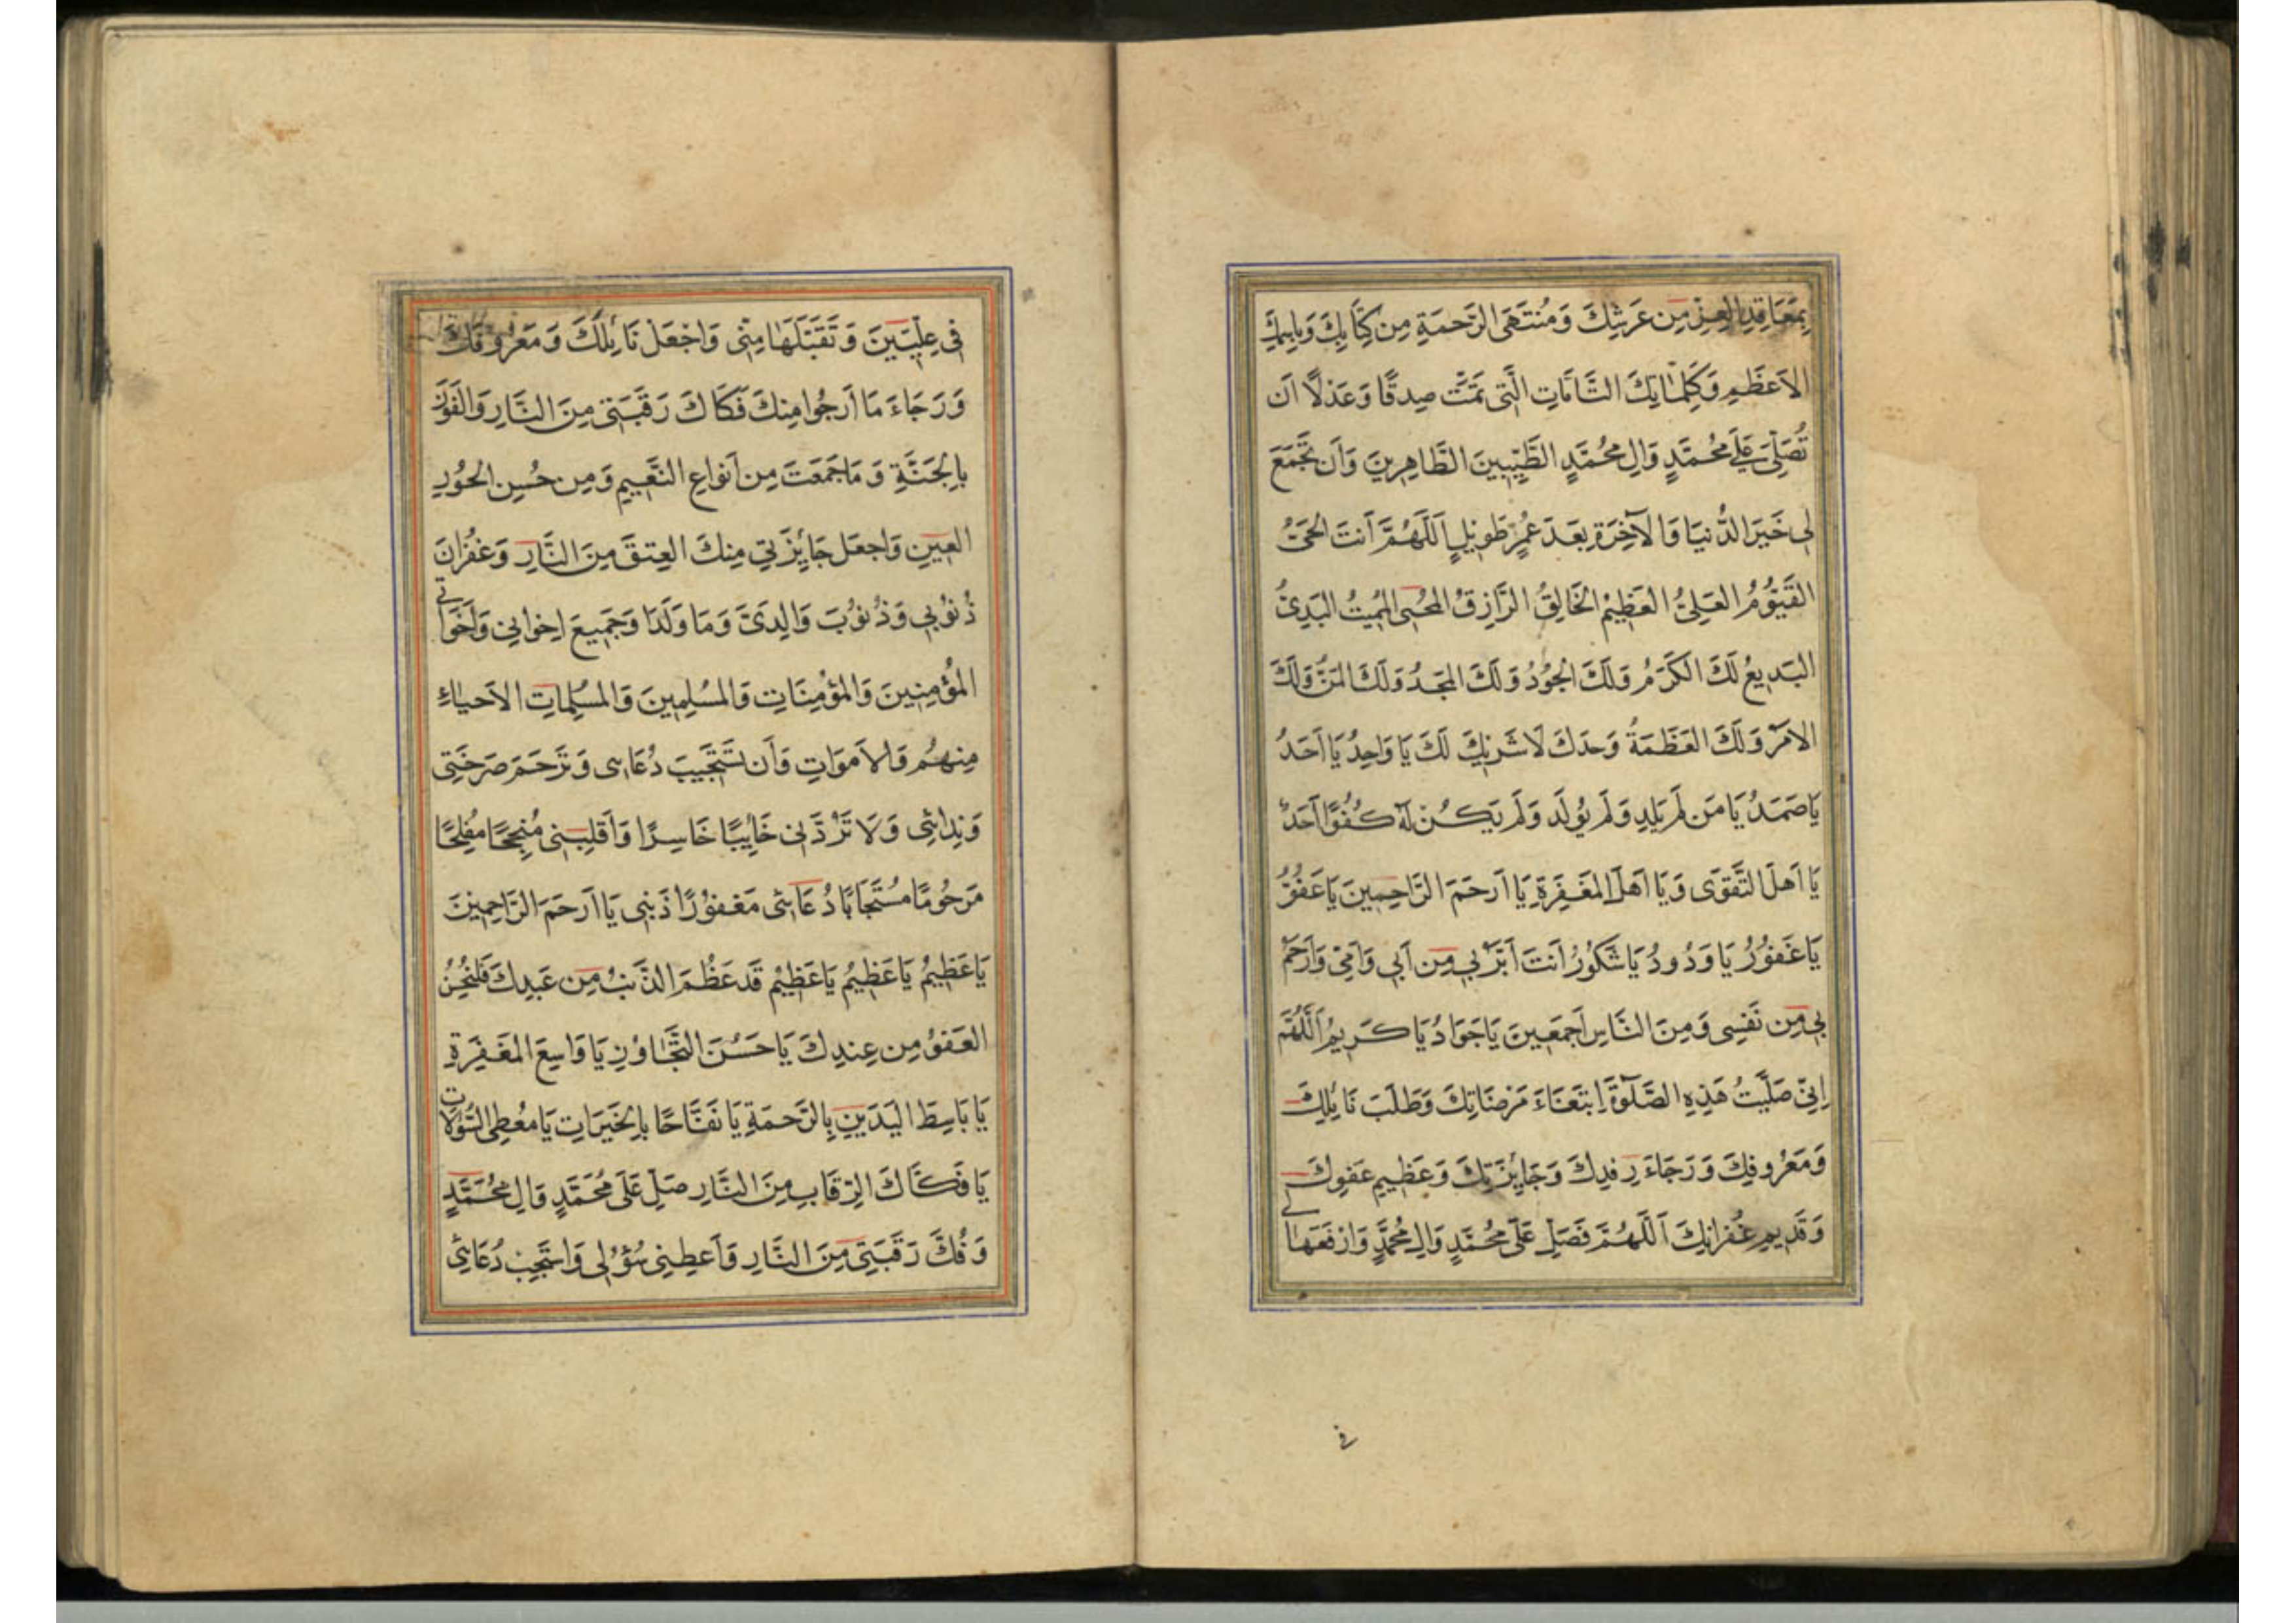 بِمَعَاقِدِ الْعِزِّ مِن عَرشِكَ وَمُنتَهَى الرَّحمَةِ مِن كِتَابِكَ وَبِاسِمِكَ
الاَعظَمِ وَكَلِمَاتِكَ التَّامَّاتِ الَّتِى تَمَّتْ صِدقًا وَعَدْلاً اَن
تُصَلِّىَ عَلَى مُحَمَّدٍ وَالِ مُحَمَّدٍ الطَّيِّبِينَ الطَّاهِرِينَ وَاَن تَجْمَعَ
لِى خَيرَ الدُّنيَا وَالآخِرَةِ بَعدَ عُمرٍ طَوِيلٍ اَللّهُمَّ اَنتَ الحَىُّ
القَيُّومُ العَلِىُّ العَظِيمُ الخَالِقُ الرَّازِقُ المُحيِى المُمِيتُ البَدِىُّ
البَدِيعُ لَكَ الكَرَمُ وَلَكَ الجُودُ وَلَكَ المَجدُ وَلَكَ المَنُّ وَلَكَ
الاَمرُ وَلَكَ العَظَمَةُ وَحدَكَ لاَ شَرِيكَ لَكَ يَا وَاحِدُ يَا اَحَدُ
يَا صَمَدُ يَا مَن لَم يَلِد وَلَم يُولَد وَلَم يَكُن لَهُ كُفُوًا اَحَدٌ
يَا اَهلَ التَّقوَى وَيَا اَهلَ المَغفِرَةِ يَا اَرحَمَ الرَّاحِمِينَ يَا عَفُوُّ
يَا غَفُورُ يَا وَدُودُ يَا شَكُورُ اَنتَ اَبَرُّ بِى مِن اَبِى وَاُمِّى وَاَرحَمُ
بِى مِن نَفسِى وَمِنَ النَّاسِ اَجمَعِينَ يَا جَوَادُ يَا كَرِيمُ اَللّهُمَّ
اِنِّى صَلَّيتُ هَذِهِ الصَّلٰوةَ اِبتِغَاءَ مَرضَاتِكَ وَطَلَبَ نَائِلِكَ
وَمَعرُوفِكَ وَرَجَاءَ رِفدِكَ وَجَائِزَتِكَ وَعَظِيمِ عَفوِكَ
وَقَدِيمِ غُفرَانِكَ اَللّهُمَّ فَصَلِّ عَلَى مُحَمَّدٍ وَالِ مُحَمَّدٍ وَارفَعهَا لِى
فى
فِى عِلِّيِّينَ وَتَقَبَّلهَا مِنِّى وَاجْعَلْ نَائِلَكَ وَمَعرُوفَكَ
وَرَجَاءَ مَا اَرجُوا مِنكَ فَكَاكَ رَقَبَتِى مِنَ النَّارِ وَالفَوزَ
بِالجَنَّةِ وَمَا جَمَعتَ مِن اَنوَاعِ النَّعِيمِ وَمِن حُسنِ الحُورِ
العِينِ وَاجعَل جَائِزَتِى مِنكَ العِتقَ مِنَ النَّارِ وَغُفرَانَ
ذُنُوبِى وَذُنُوبَ وَالِدَىَّ وَمَا وَلَدَا وَجَمِيعَ اِخوَانِى وَاَخَوَاتِى
المُؤمِنِينَ وَالمُؤمِنَاتِ وَالمُسلِمِينَ وَالمُسلِمَاتِ الاَحيَاءِ
مِنهُم وَالاَموَاتِ وَاَن تَستَجِيبَ دُعَائِى وَتَرحَمَ صَرخَتِى
وَنِدَائِى وَلاَ تَرُدَّنِى خَائِبًا خَاسِرًا وَاَقلِبنِى مُنجِحًا مُفلِحًا
مَرحُومًا مُستَجَابًا دُعَائِى مَغفُورًا ذَنبِى يَا اَرحَمَ الرَّاحِمِينَ
يَا عَظِيمُ يَا عَظِيمُ يَا عَظِيمُ قَد عَظُمَ الذَّنبُ مِن عَبدِكَ فَليَحسُنِ
العَفوُ مِن عِندِكَ يَا حَسَنَ التَّجَاوُزِ يَا وَاسِعَ المَغفِرَةِ
يَا بَاسِطَ اليَدَينِ بِالرَّحمَةِ يَا نَفَّاحًا بِالخَيرَاتِ يَا مُعطِى السُّؤلاَتِ
يَا فَكَّاكَ الرِّقَابِ مِنَ النَّارِ صَلِّ عَلَى مُحَمَّدٍ وَالِ مُحَمَّدٍ
وَفُكَّ رَقَبَتِى مِنَ النَّارِ وَاَعطِنِى سُؤلِى وَاستَجِب دُعَائِى